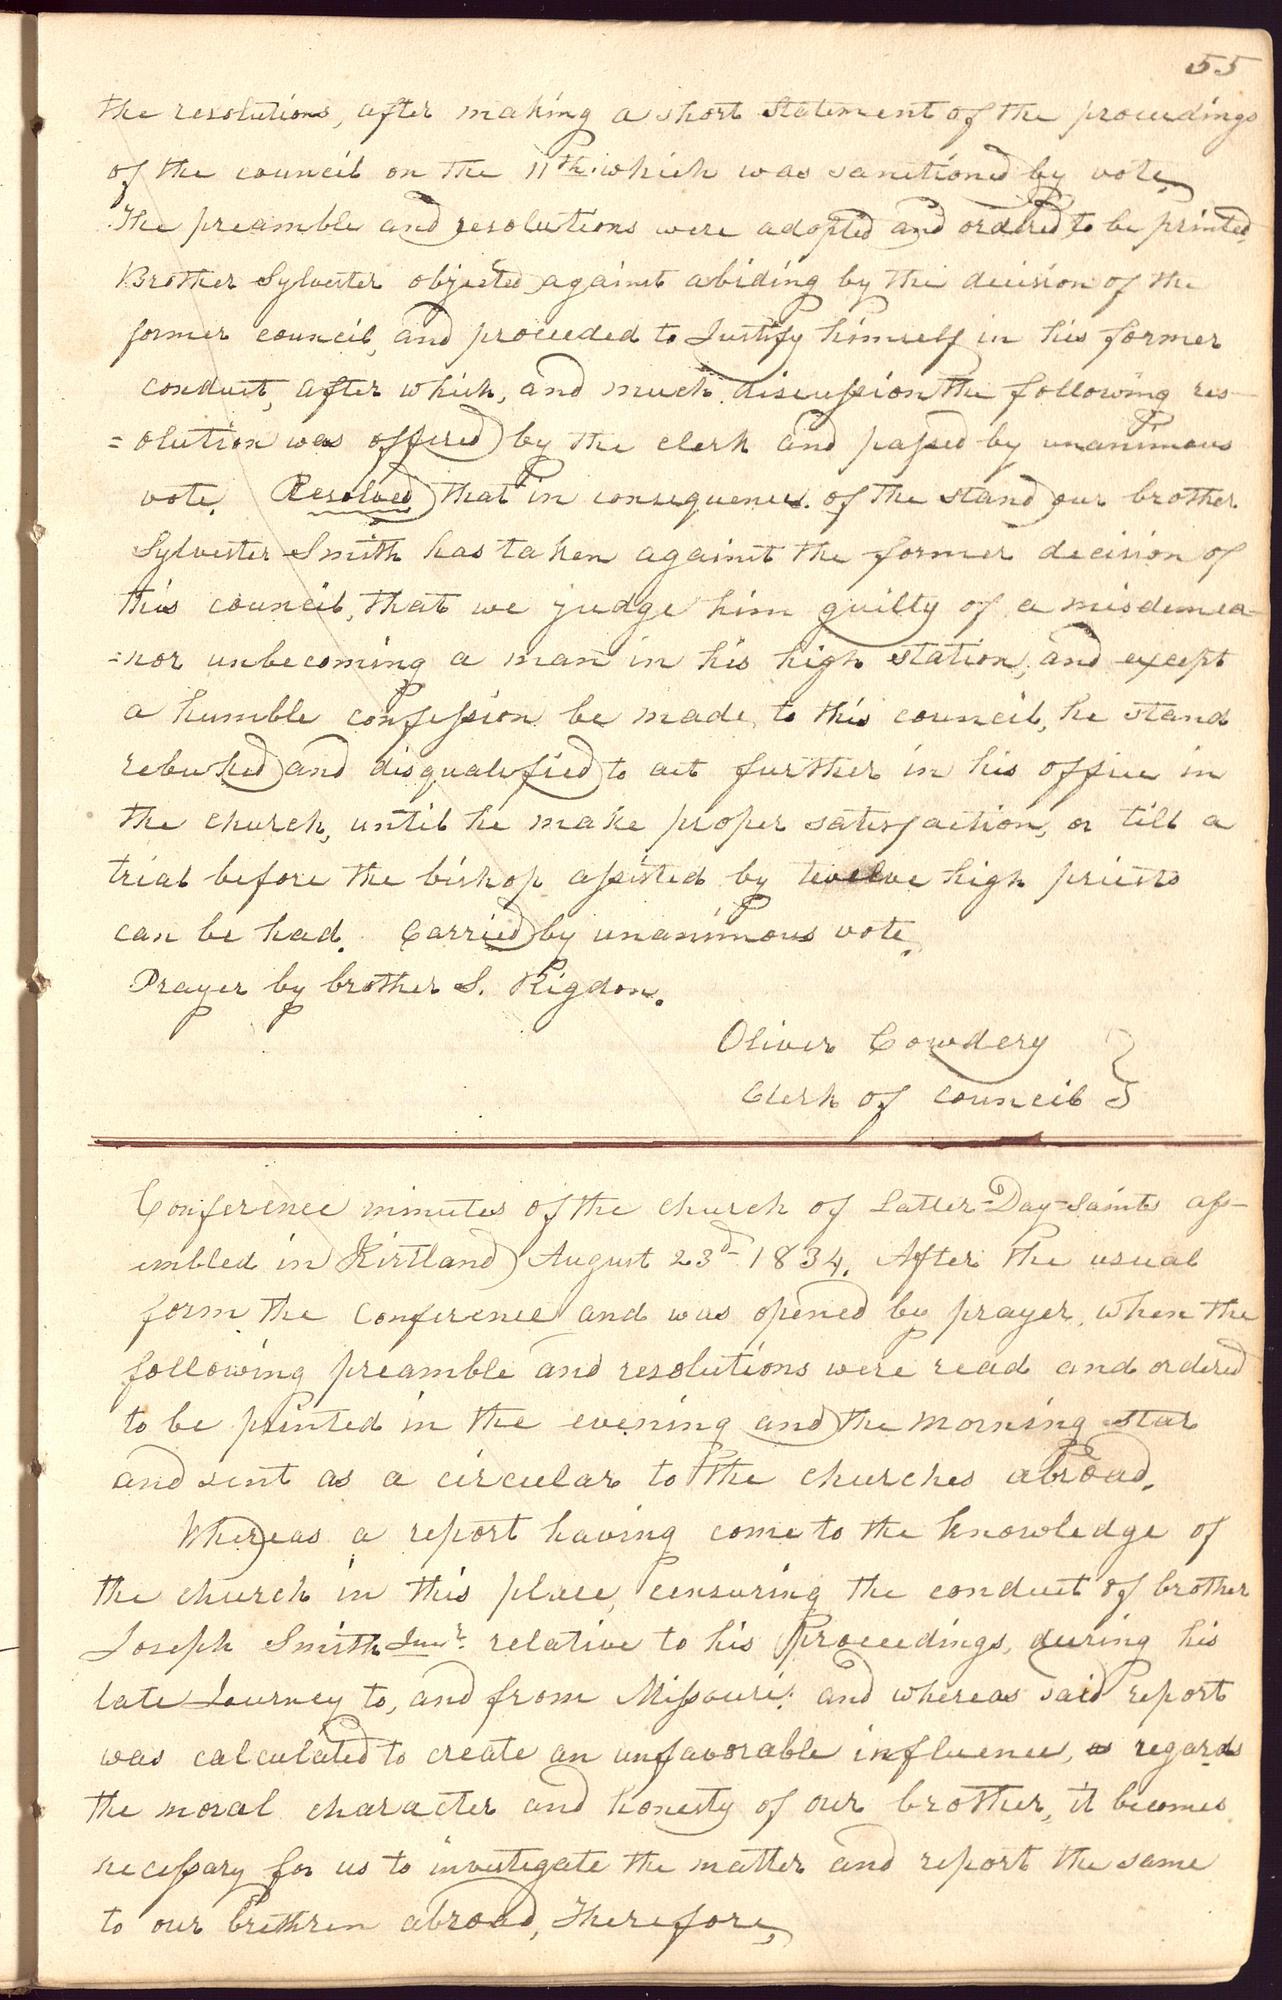 55
the resolutions, after making a short statement of the proceedings
of the council on the 11th. which was sanctioned by vote.
The preamble and resolutions were adopted and ordered to be printed.
Brother Sylvester objected against abiding by the decision of the
former council, and proceeded to Justify himself in his former
conduct, after which, and much discussion the following res-
=olution was offered by the clerk and passed by unanimous
vote. Resolved that in consequence of the stand our brother
Sylvester Smith has taken against the former decision of
this council, that we judge him guilty of a misdemea-
=nor unbecoming a man in his high station, and except
a humble confession be made to this council, he stand
rebuked and disqualified to act further in his office in
the church, until he make proper satisfaction, or till a
trial before the bishop assisted by twelve high priests
can be had. Carried by unanimous vote.
Prayer by brother S. Rigdon.
Oliver Cowdery
Clerk of council
Conference minutes of the church of Latter-Day-Saints ass-
embled in Kirtland August 23d 1834. After the usual
form the Conference and was opened by prayer, when the
following preamble and resolutions were read and ordered
to be printed in the evening and the morning star
and sent as a circular to the churches abroad.
Whereas a report having come to the knowledge of
the church in this place, censuring the conduct of brother
Joseph Smith Junr. relative to his proceedings, during his
late Journey to, and from Missouri: and whereas said report
was calculated to create an unfavorable influence, as regards
the moral character and honesty of our brother, it becomes
necessary for us to investigate the matter and report the same
to our brethren abroad, Therefore,